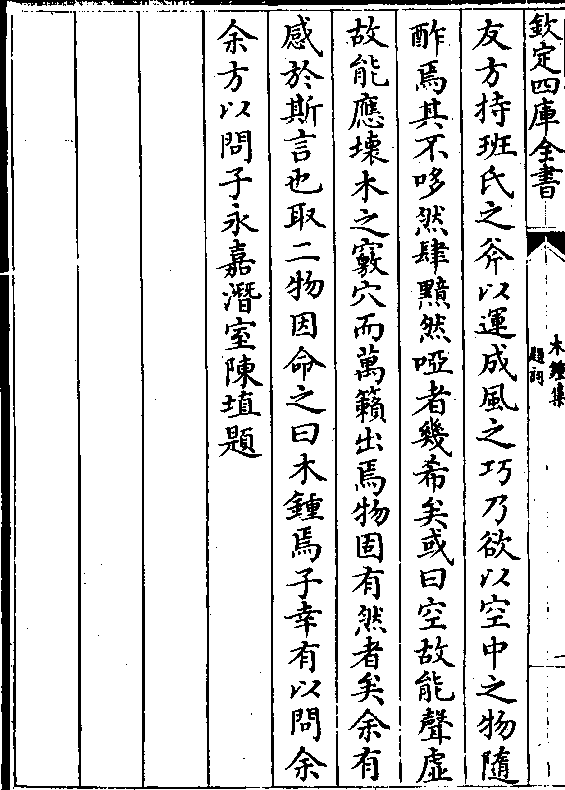 欽定四庫全書
木鍾集
題詞
友方持班氏之斧以運成風之巧乃欲以空中之物隨
酢焉其不哆然肆黯然啞者幾希矣或曰空故能聲虛
故能應壊木之竅穴而萬籟出焉物固有然者矣余有
感於斯言也取二物因命之曰木鍾焉子幸有以問余
余方以問子永嘉潛室陳埴題